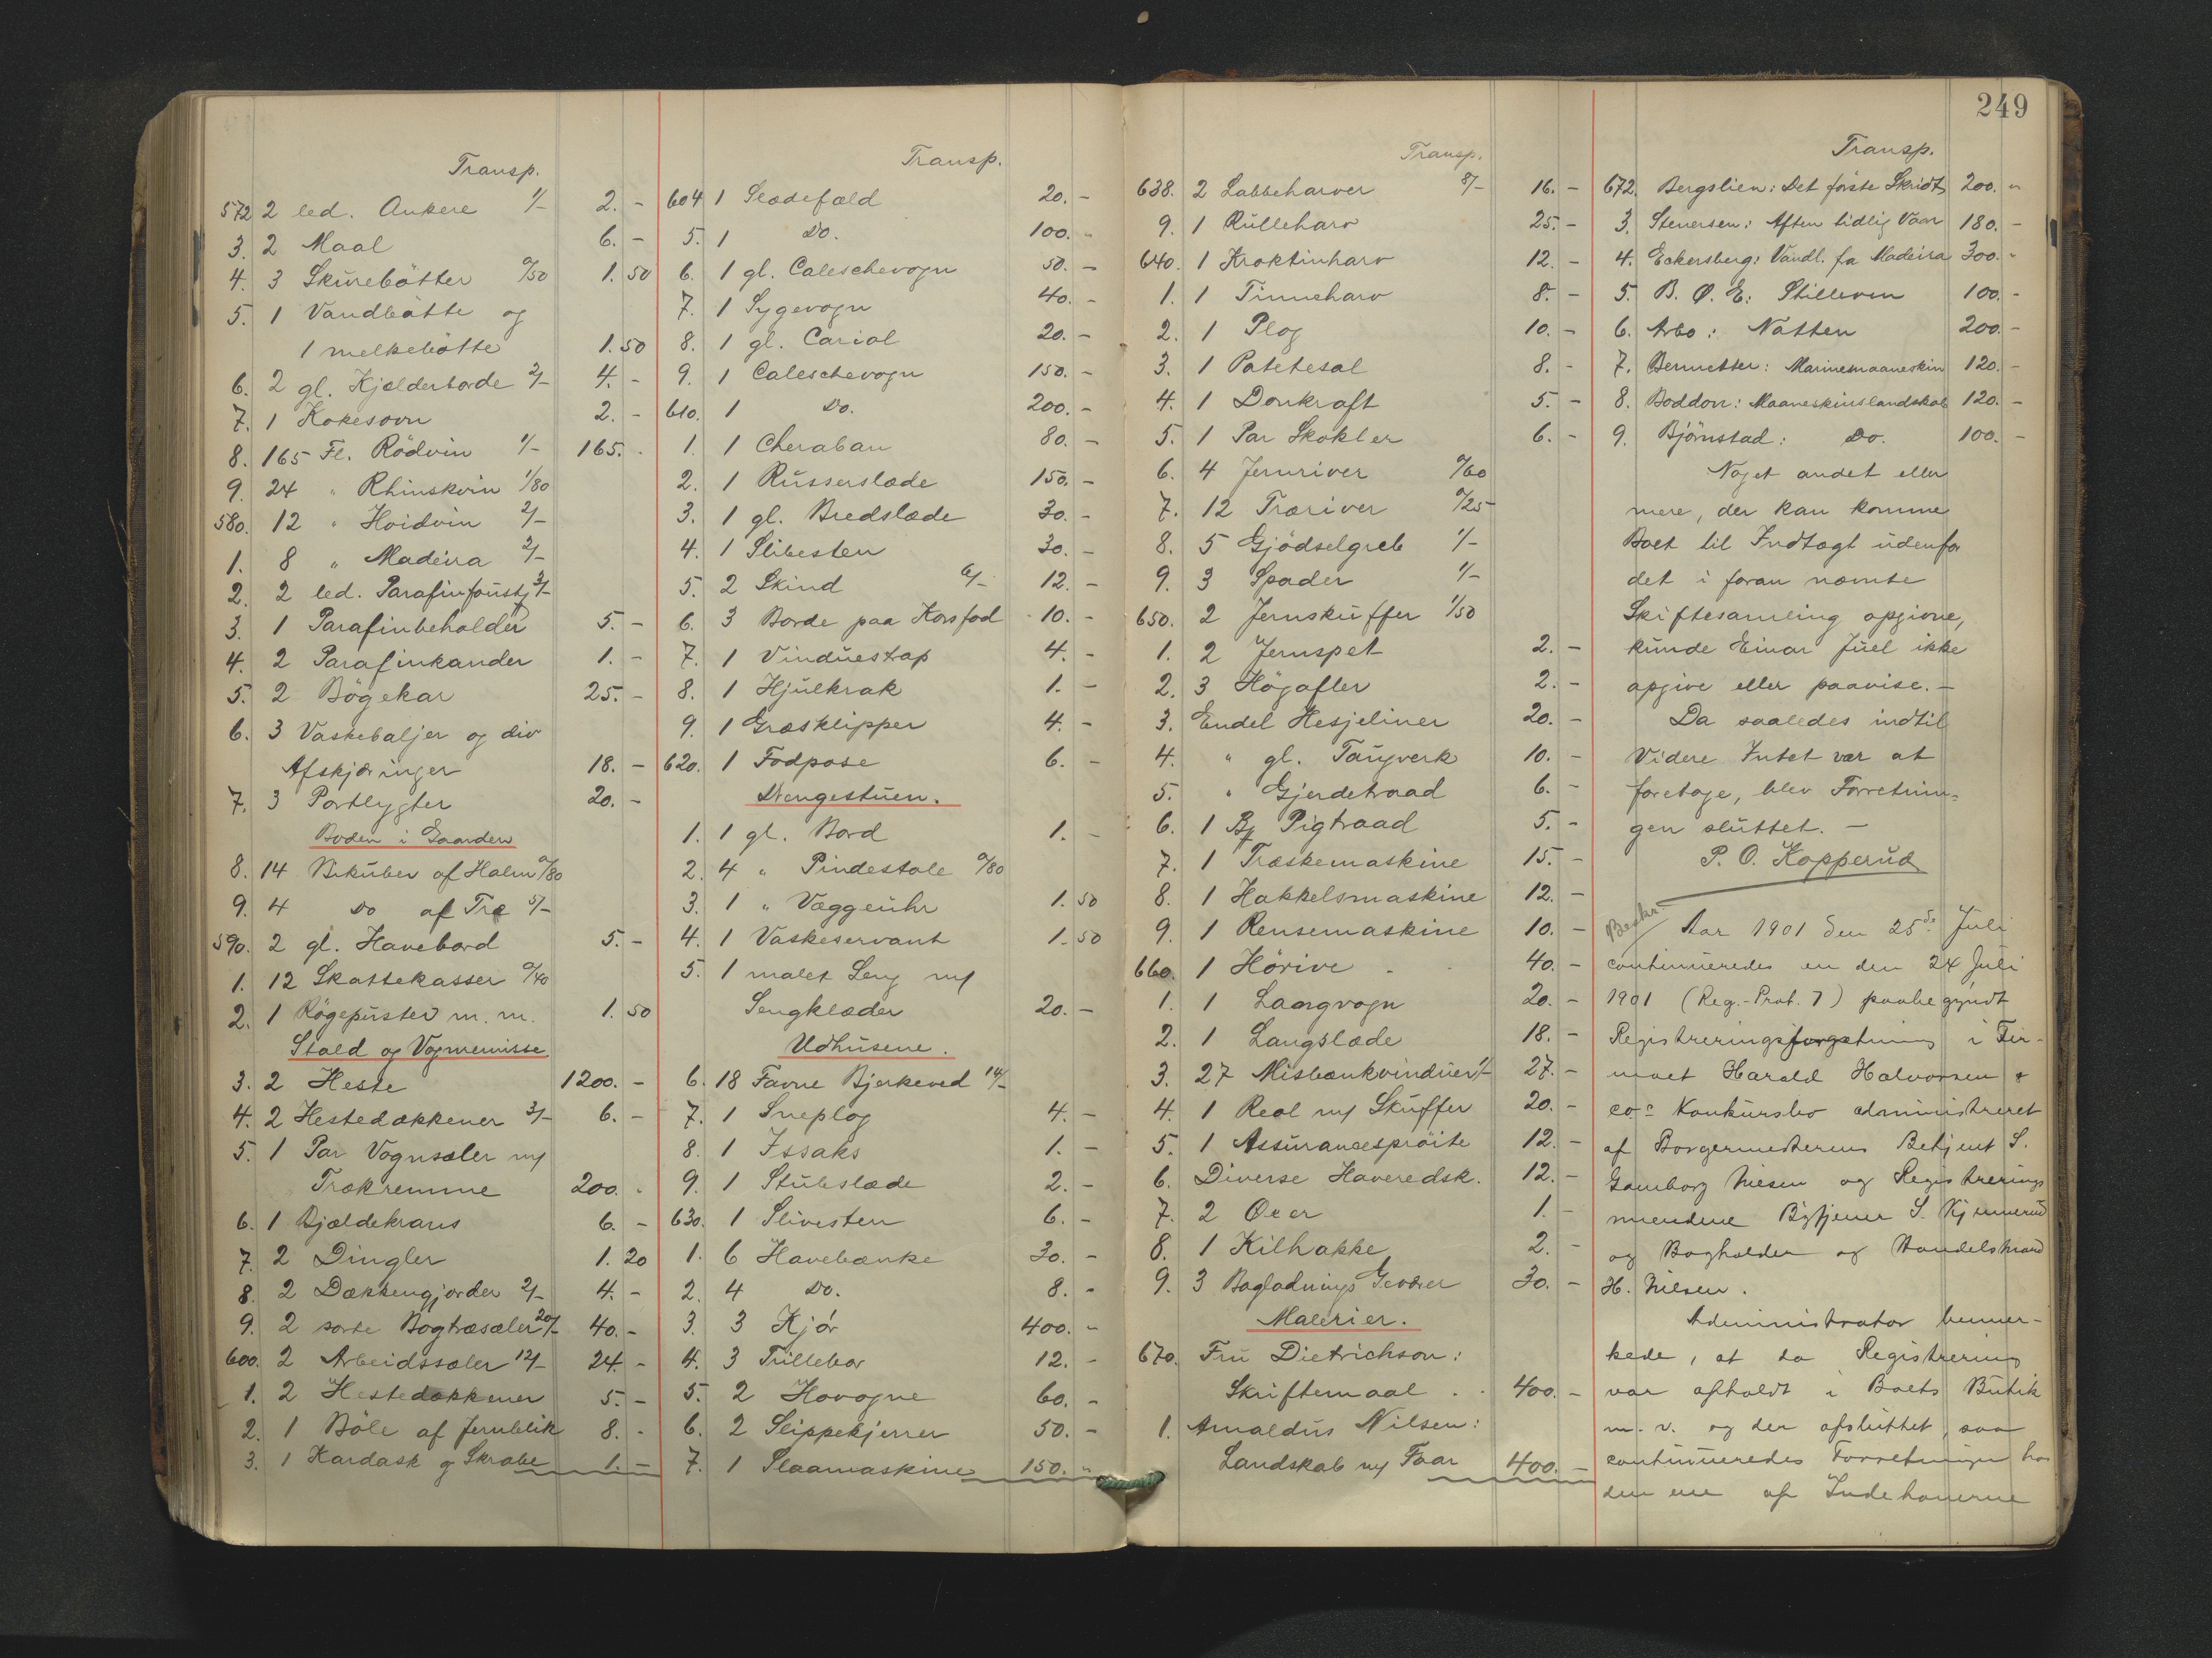 Transp.
572 2 led. Ankere 1/- 2. -
3. 2 Maal 6. -
4. 3 Skurebøtter 0/50 1. 50
5. 1 Vandbøtte og
1 melkebøtte 1. 50
6. 2 gl. Kjælderborde 2/- 4. -
7. 1 Kokesovn 2. -
8. 165 Fl. Rödvin 1/- 165. -
9. 24 " Rhinskvin 1/80
580. 12 " Hvidvin 2/-
1. 8 " Madeira 2/-
2. 2 led. Parafinfoustj. 3/-
3. 1 Parafinbeholder 5. -
4. 2 Parafinkander 1. -
5. 2 Bögekar 25. -
6. 3 Vaskebaljer og div
Afskjæringer 18. -
7. 3 Portlygter 20. -
Boden i Gaarden
8. 14 Bikuber af Halm 0/80
9. 4 Do af Træ 5/-
590. 2 gl. Havebord 5. -
1. 12 Skattekasser 0/40
2. 1 Røgepuster m. m. 1. 50
Stald og Vognremisse
3. 2 Heste 1200. -
4. 2 Hestedækkener 3/- 6. -
5. 1 Par Vognsæler m/
Trækremme 200. -
6. 1 Bjældekrans 6. -
7. 2 Dingler 1. 20
8. 2 Dækkengjorder 2/- 4. -
9. 2 sorte Bogtræsæler 20/- 40. -
600. 2 Arbeidssæler 12/- 24. -
1. 2 Hestedækkener 5. -
2. 1 Bøle af Jernblik 8. -
3. 1 Kardask og Skrabe 1. -
Transp.
604 1 Slædefæld 20. -
5. 1 Do. 100. -
6. 1 gl. Caleschevogn 50. -
7. 1 Sygevogn 40. -
8. 1 gl. Cariol 20. -
9. 1 Caleschevogn 150. -
610. 1 Do. 200. -
1. 1 Cheraban 80. -
2. 1 Russerslæde 150. -
3. 1 gl. Bredslæde 30. -
4. 1 Slibesten 30. -
5. 2 Skind 6/- 12. -
6. 3 Borde paa Korsfod 10. -
7. 1 Vinduestrap 4. -
8. 1 Hjulkrak 1. -
9. 1 Græsklipper 4. -
620. 1 Fodpose 6. -
Drengestuen.
1. 1 gl. Bord 1. -
2. 4 " Pindestole 0/80
3. 1 " Væggeuhr 1. 50
4. 1 Vaskeservant 1. 50
5. 1 malet Seng m/
Sengklæder 20. -
Udhusene.
6. 18 Favne Bjerkeved 14/-
7. 1 Sneplog 4. -
8. 1 Issaks 1. -
9. 1 Stubslæde 2. -
630. 1 Slivesten 6. -
1. 6 Havebænke 30. -
2. 4 Do. 8. -
3. 3 Kjør 400. -
4. 3 Trillebør 12. -
5. 2 Høvogne 60. -
6. 2 Slippekjerrer 50. -
7. 1 Slaamaskine 150. -
Transp.
638. 2 Labbeharver 8/- 16. -
9. 1 Rulleharv 25. -
640. 1 Kroktinharv 12. -
1. 1 Tinneharv 8. -
2. 1 Plog 10. -
3. 1 Potetesal 8. -
4. 1 Donkraft 5. -
5. 1 Par Skokler 6. -
6. 4 Jernriver 0/60
7. 12 Træriver 0/25
8. 5 Gjødselgreb 1/-
9. 3 Spader 1/-
650. 2 Jernskuffer 1/50
1. 2 Jernspet 2. -
2. 3 Høgafler 2. -
3. Endel Hesjeliner 20. -
4. " gl. Taugverk 10. -
5. " Gjerdetraad 6. -
6. 1 Bj Pigtraad 5. -
7. 1 Træskemaskine 15. -
8. 1 Hakkelsmaskine 12. -
9. 1 Rensemaskine 10. -
660. 1 Hørive 40. -
1. 1 Langvogn 20. -
2. 1 Langslæde 18. -
3. 27 Misbænkvinduer 1/- 27. -
4. 1 Reol m/ Skuffer 20. -
5. 1 Assurancesprøite 12. -
6. Diverse Haveredsk. 12. -
7. 2 Øxer 1. -
8. 1 Kilhakke 2. -
9. 3 Bagladnings Geværer 30. -
Malerier.
670. Fru Dietrichson:
Skriftemaal 400. -
1. Amaldus Nilsen:
Landskab m/ Faar 400. -
249
Transp.
672. Bergslien: Det første Skridt 200. -
3. Stenersen: Aften tidlig Vaar 180. -
4. Eckersberg: Vandl. fra Madeira 300. -
5. B. Ø. E: Stilleven 100. -
6. Arbo: Natten 200. -
7. Bennetter: Marinemaaneskin 120. -
8. Boddon: Maaneskinslandskab 120. -
9. Bjørnstad: Do. 100. -
Noget andet eller
mere, der kan komme
Boet til Indtægt udenfor
det i foran nævnte
Skiftesamling opgivne,
kunde Einar Juel ikke
opgive eller paavise. -
Da saaledes indtil
Videre Intet var at
foretage, blev Forretnin=
gen sluttet. -
P. O. Kopperud
Beskr.
Aar 1901 den 25de Juli
continueredes en den 24 Juli
1901 (Reg.-Prot. 7) paabegyndt
Registreringsforretning i Fir-
maet Harald Halvorsen &
co's Konkursbo administreret
af Borgermesterens Betjent S.
Gamborg Nilsen og Registrerings
mændene Bytjener S. Kjennerud
og Bogholder og Handelsmand
H. Nilsen.
Administrator bemær-
kede, at da Registrering
var afholdt i Boets Butik
m. v. og der afsluttet, saa
continueredes Forretningen hos
den ene af Indehaverne